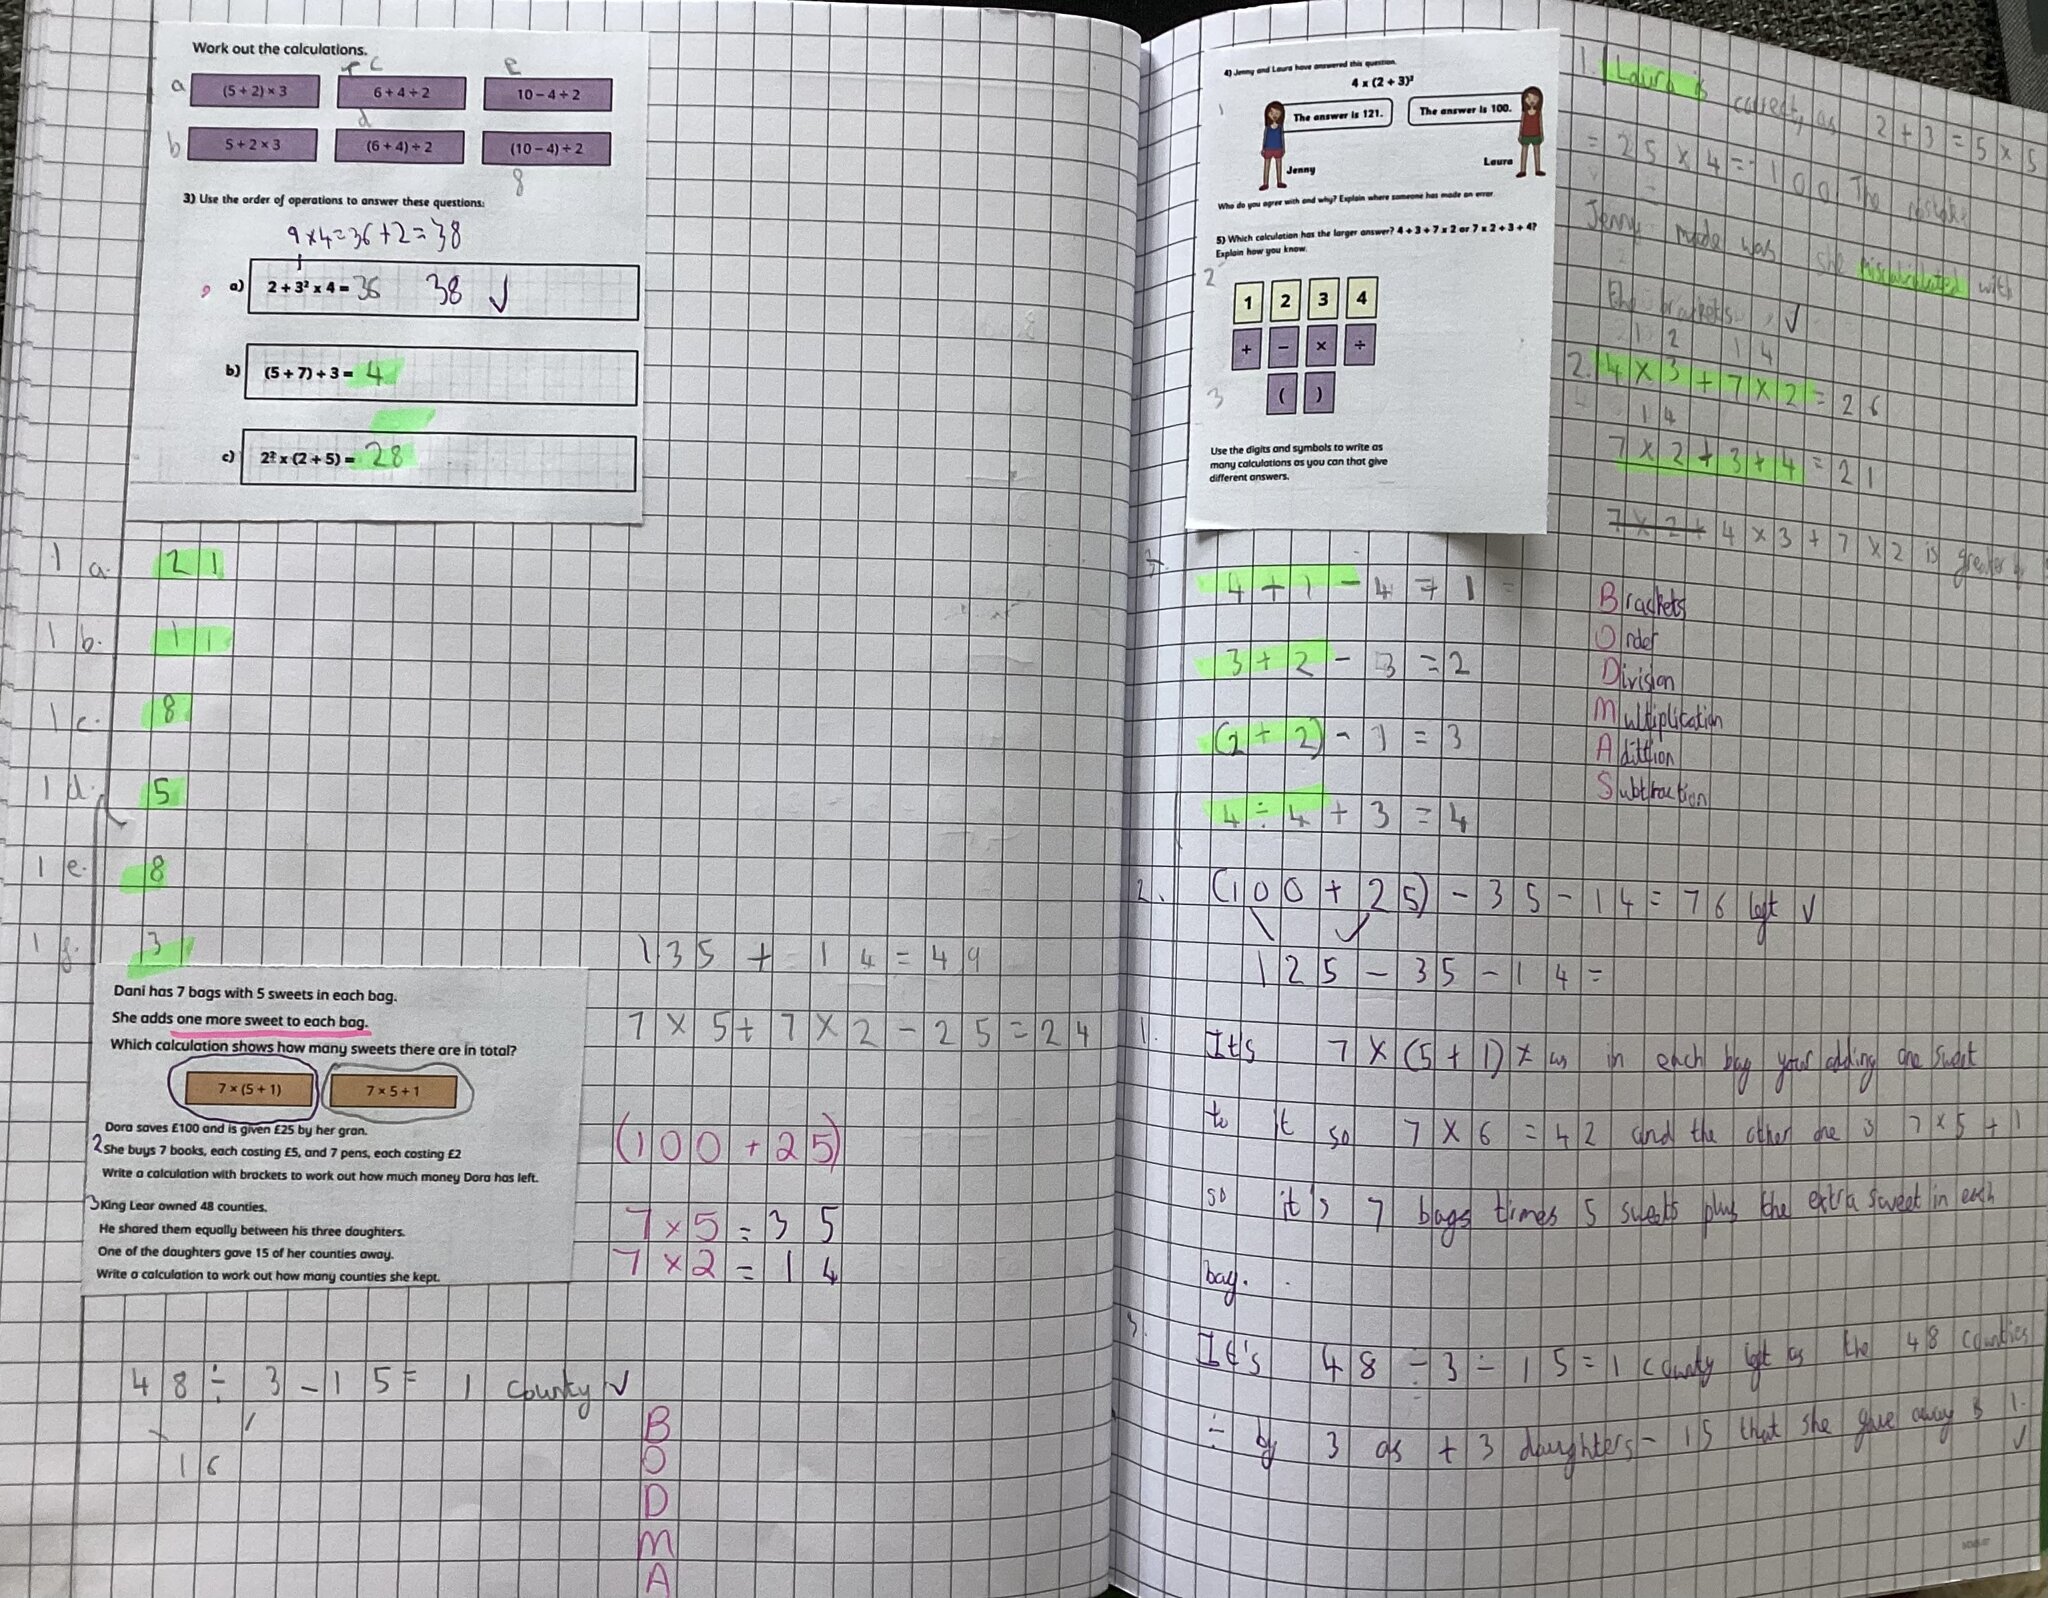 Work out the calculations.
a (5 + 2) × 3 c 6 + 4 ÷ 2 e 10 – 4 ÷ 2
b 5 + 2 × 3 d (6 + 4) ÷ 2 (10 – 4) ÷ 2
3) Use the order of operations to answer these questions:
9 x 4 = 36 + 2 = 38
a) 2 + 3² x 4 = 36 38 ✓
b) (5 + 7) ÷ 3 = 4
c) 2² x (2 + 5) = 28
1 a. 21
1 b. 11
1 c. 8
1 d. 5
1 e. 8
1 f. 3
Dani has 7 bags with 5 sweets in each bag.
She adds one more sweet to each bag.
Which calculation shows how many sweets there are in total?
7 × (5 + 1) 7 × 5 + 1
Dora saves £100 and is given £25 by her gran.
2 She buys 7 books, each costing £5, and 7 pens, each costing £2
Write a calculation with brackets to work out how much money Dora has left.
3 King Lear owned 48 counties.
He shared them equally between his three daughters.
One of the daughters gave 15 of her counties away.
Write a calculation to work out how many counties she kept.
135 + 14 = 49
7 x 5 + 7 x 2 - 25 = 24
(100 + 25)
7 x 5 = 35
7 x 2 = 14
48 ÷ 3 - 15 = 1 county ✓
16
B
O
D
M
A
4) Jenny and Laura have answered this question.
4 x (2 + 3)²
1 The answer is 121. The answer is 100.
Jenny Laura
Who do you agree with and why? Explain where someone has made an error.
5) Which calculation has the larger answer? 4 + 3 + 7 x 2 or 7 x 2 + 3 + 4?
Explain how you know.
2
1 2 3 4
+ – × ÷
3 ( )
Use the digits and symbols to write as
many calculations as you can that give
different answers.
1. Laura is correct, as 2 + 3 = 5 x 5
= 25 x 4 = 100. The mistake
Jenny made was she with
the brackets. ✓
12 14
2. 4 x 3 + 7 x 2 = 26
14
7 x 2 + 3 + 4 = 21
7 x 2 + 4 x 3 + 7 x 2 is greater
3.
4 + 1 - 4 = 1
3 + 2 - 3 = 2
(2 + 2) - 1 = 3
4 ÷ 4 + 3 = 4
Brackets
Order
Division
Multiplication
Adittion
Subtraction
2. (100 + 25) - 35 - 14 = 76 left ✓
125 - 35 - 14 =
1. It's 7 x (5 + 1) as in each bag your adding one sweet
to it so 7 x 6 = 42 and the other one is 7 x 5 + 1
so it's 7 bags times 5 sweets plus the extra sweet in each
bag.
3. It's 48 ÷ 3 - 15 = 1 county left as the 48 counties
÷ by 3 as + 3 daughters - 15 that she gave away is 1.
✓